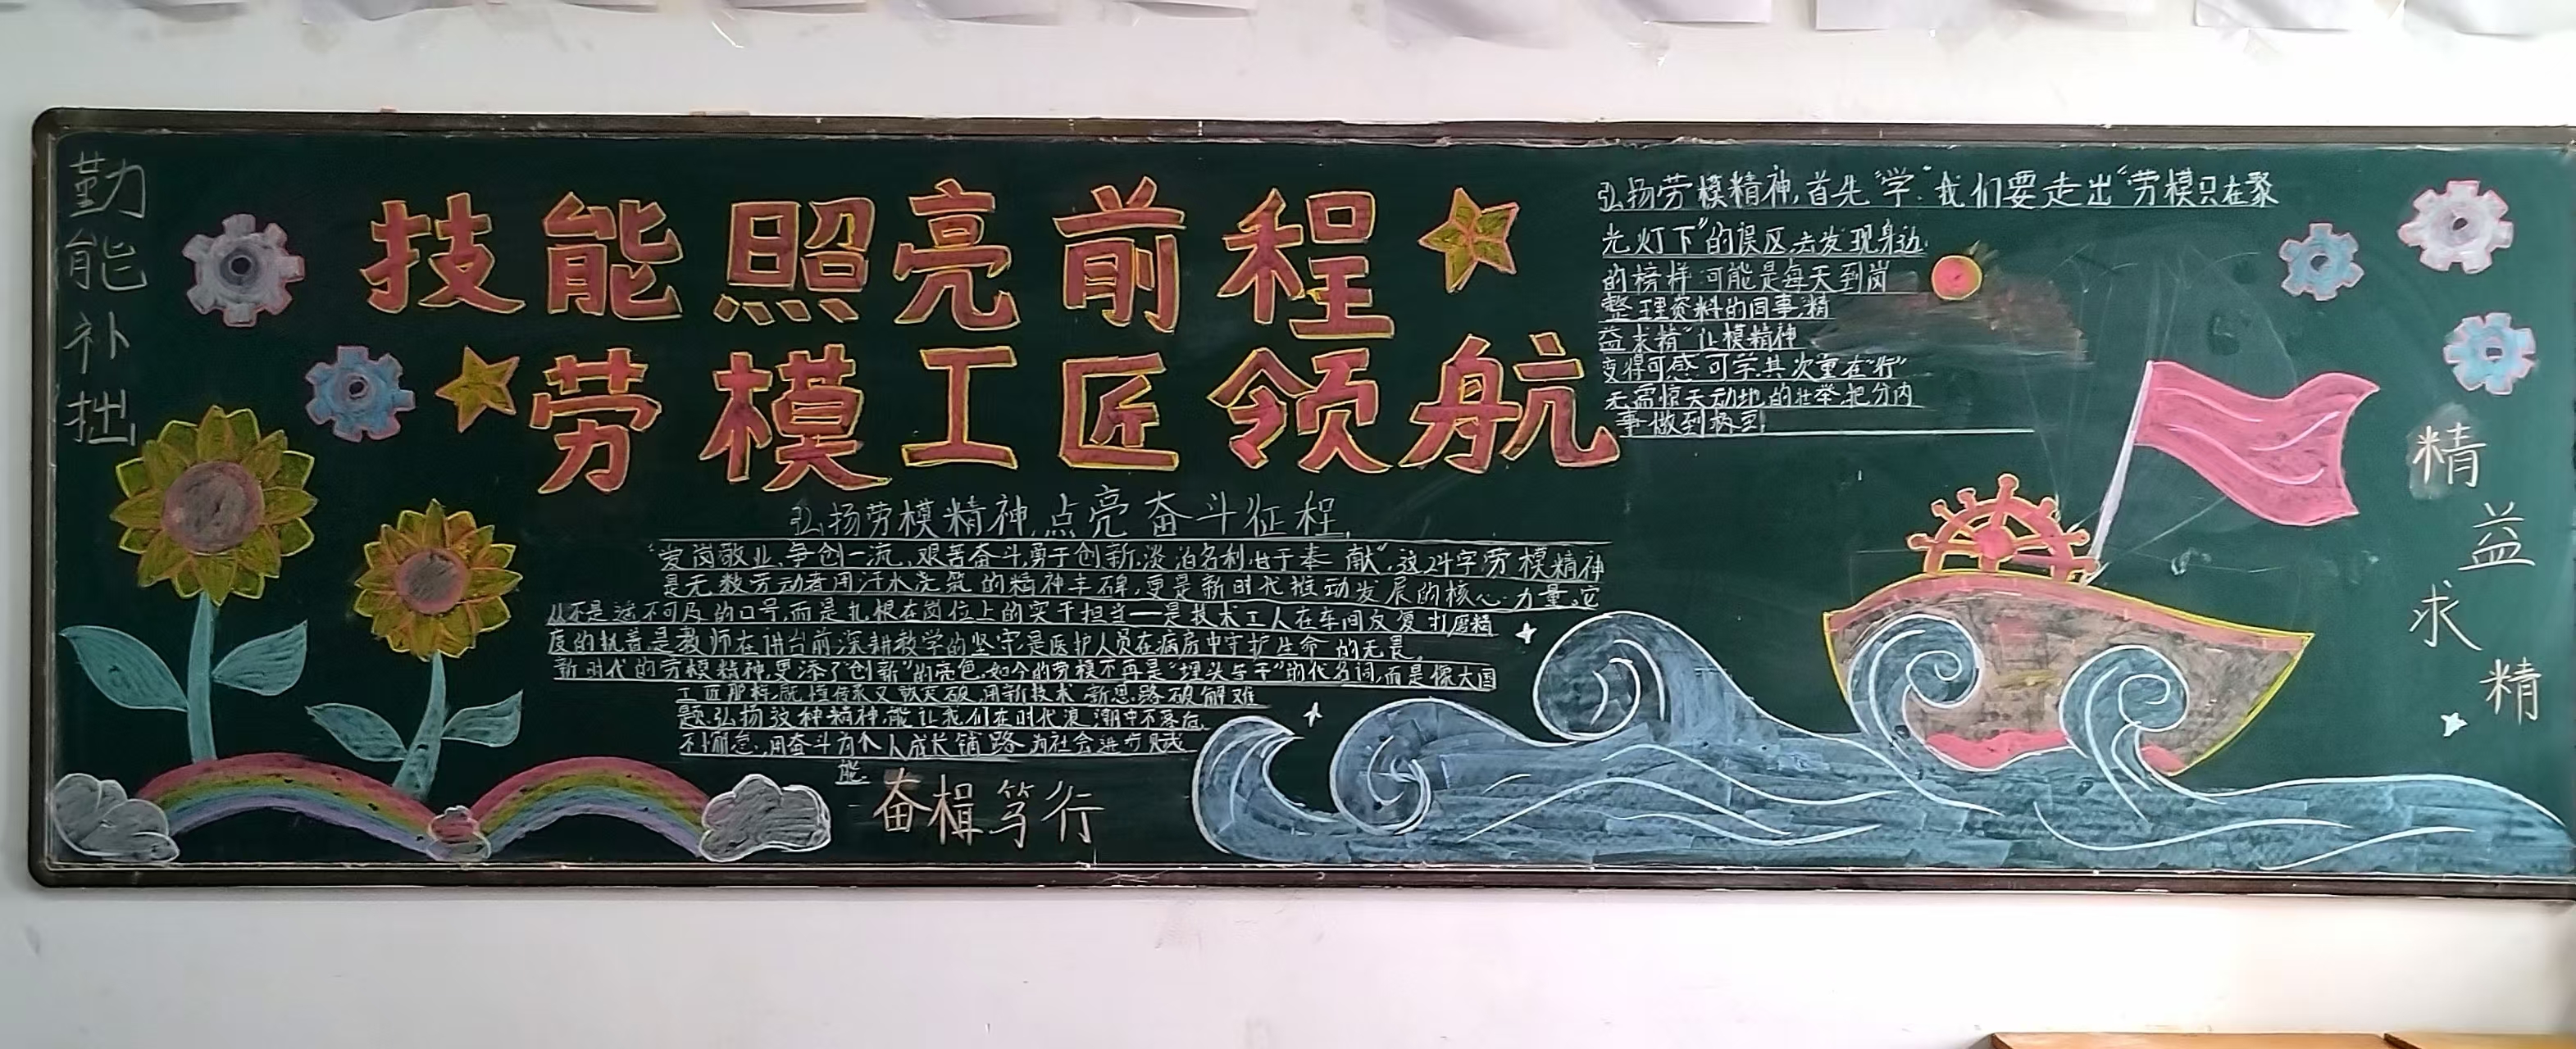 勤能补拙
技能照亮前程
劳模工匠领航
弘扬劳模精神,点亮奋斗征程.
“爱岗敬业、争创一流、艰苦奋斗、勇于创新、淡泊名利、甘于奉献”,这24字劳模精神
是无数劳动者用汗水浇筑的精神丰碑,更是新时代推动发展的核心力量,它
从不是遥不可及的口号,而是扎根在岗位上的实干担当——是技术工人在车间反复打磨精
度的执着,是教师在讲台前深耕教学的坚守,是医护人员在病房中守护生命的无畏.
新时代的劳模精神,更添了“创新”的亮色,如今的劳模不再是“埋头苦干”的代名词,而是像大国
工匠那样,既懂传承又敢突破,用新技术 新思路破解难
题.弘扬这种精神,能让我们在时代浪潮中不落后,
不懈怠,用奋斗为个人成长铺路,为社会进步赋
能.
奋楫笃行
弘扬劳模精神,首先“学”.我们要走出“劳模只在聚
光灯下”的误区,去发现身边
的榜样,可能是每天到岗
整理资料的同事,精
益求精“让模精神
变得可感,可学.其次重在“行”
无需惊天动地的壮举,把分内
事做到极至!
精益求精